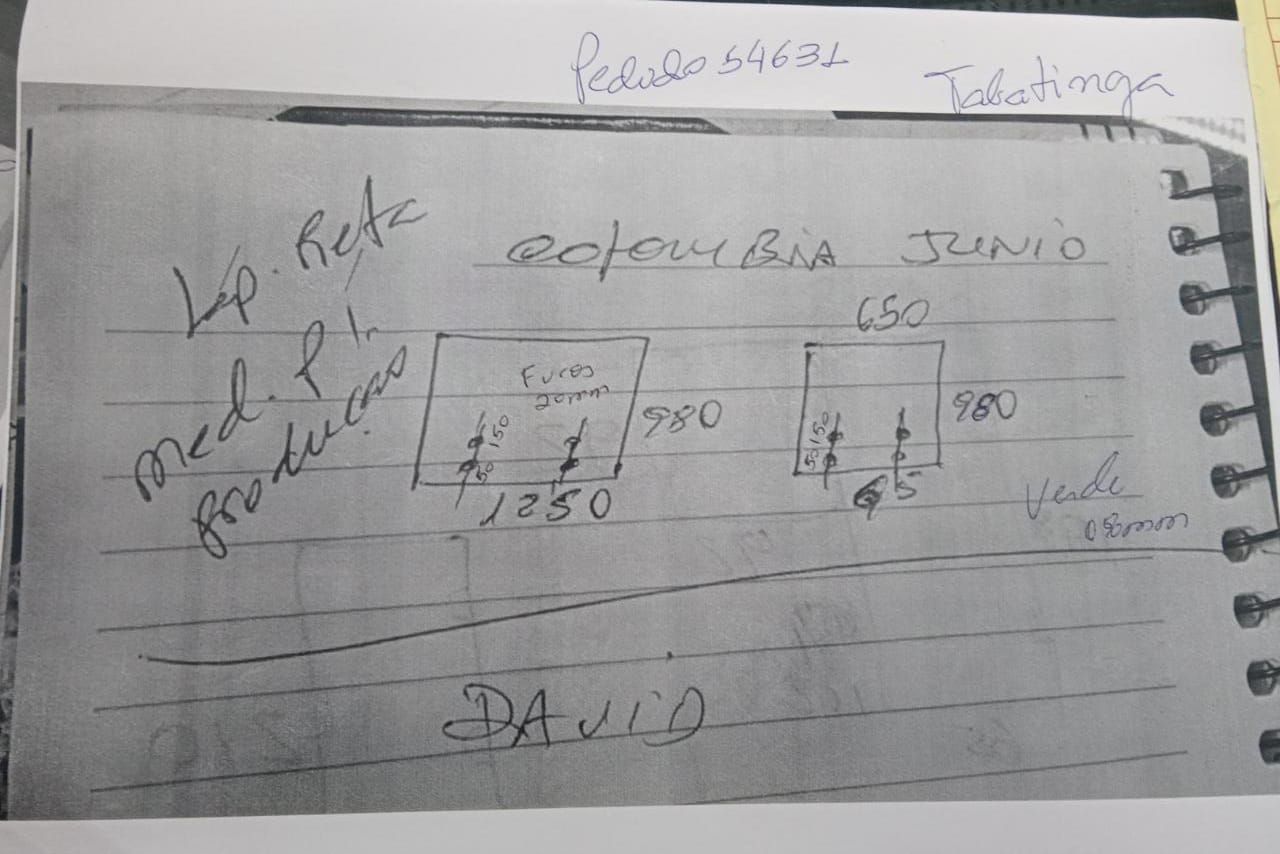 Pedido 54631
Tabatinga
Lap. Reta
med. p/
produçao
Colombia JUNIO
650
Furos
20mm
980
980
150
50
150
50
1250
65
Verde
080mm
DAVID